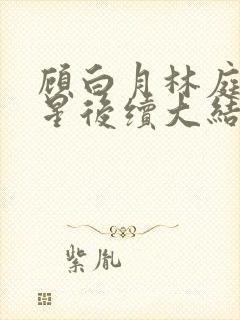 顾白月林庭
星後續大結
紫胤